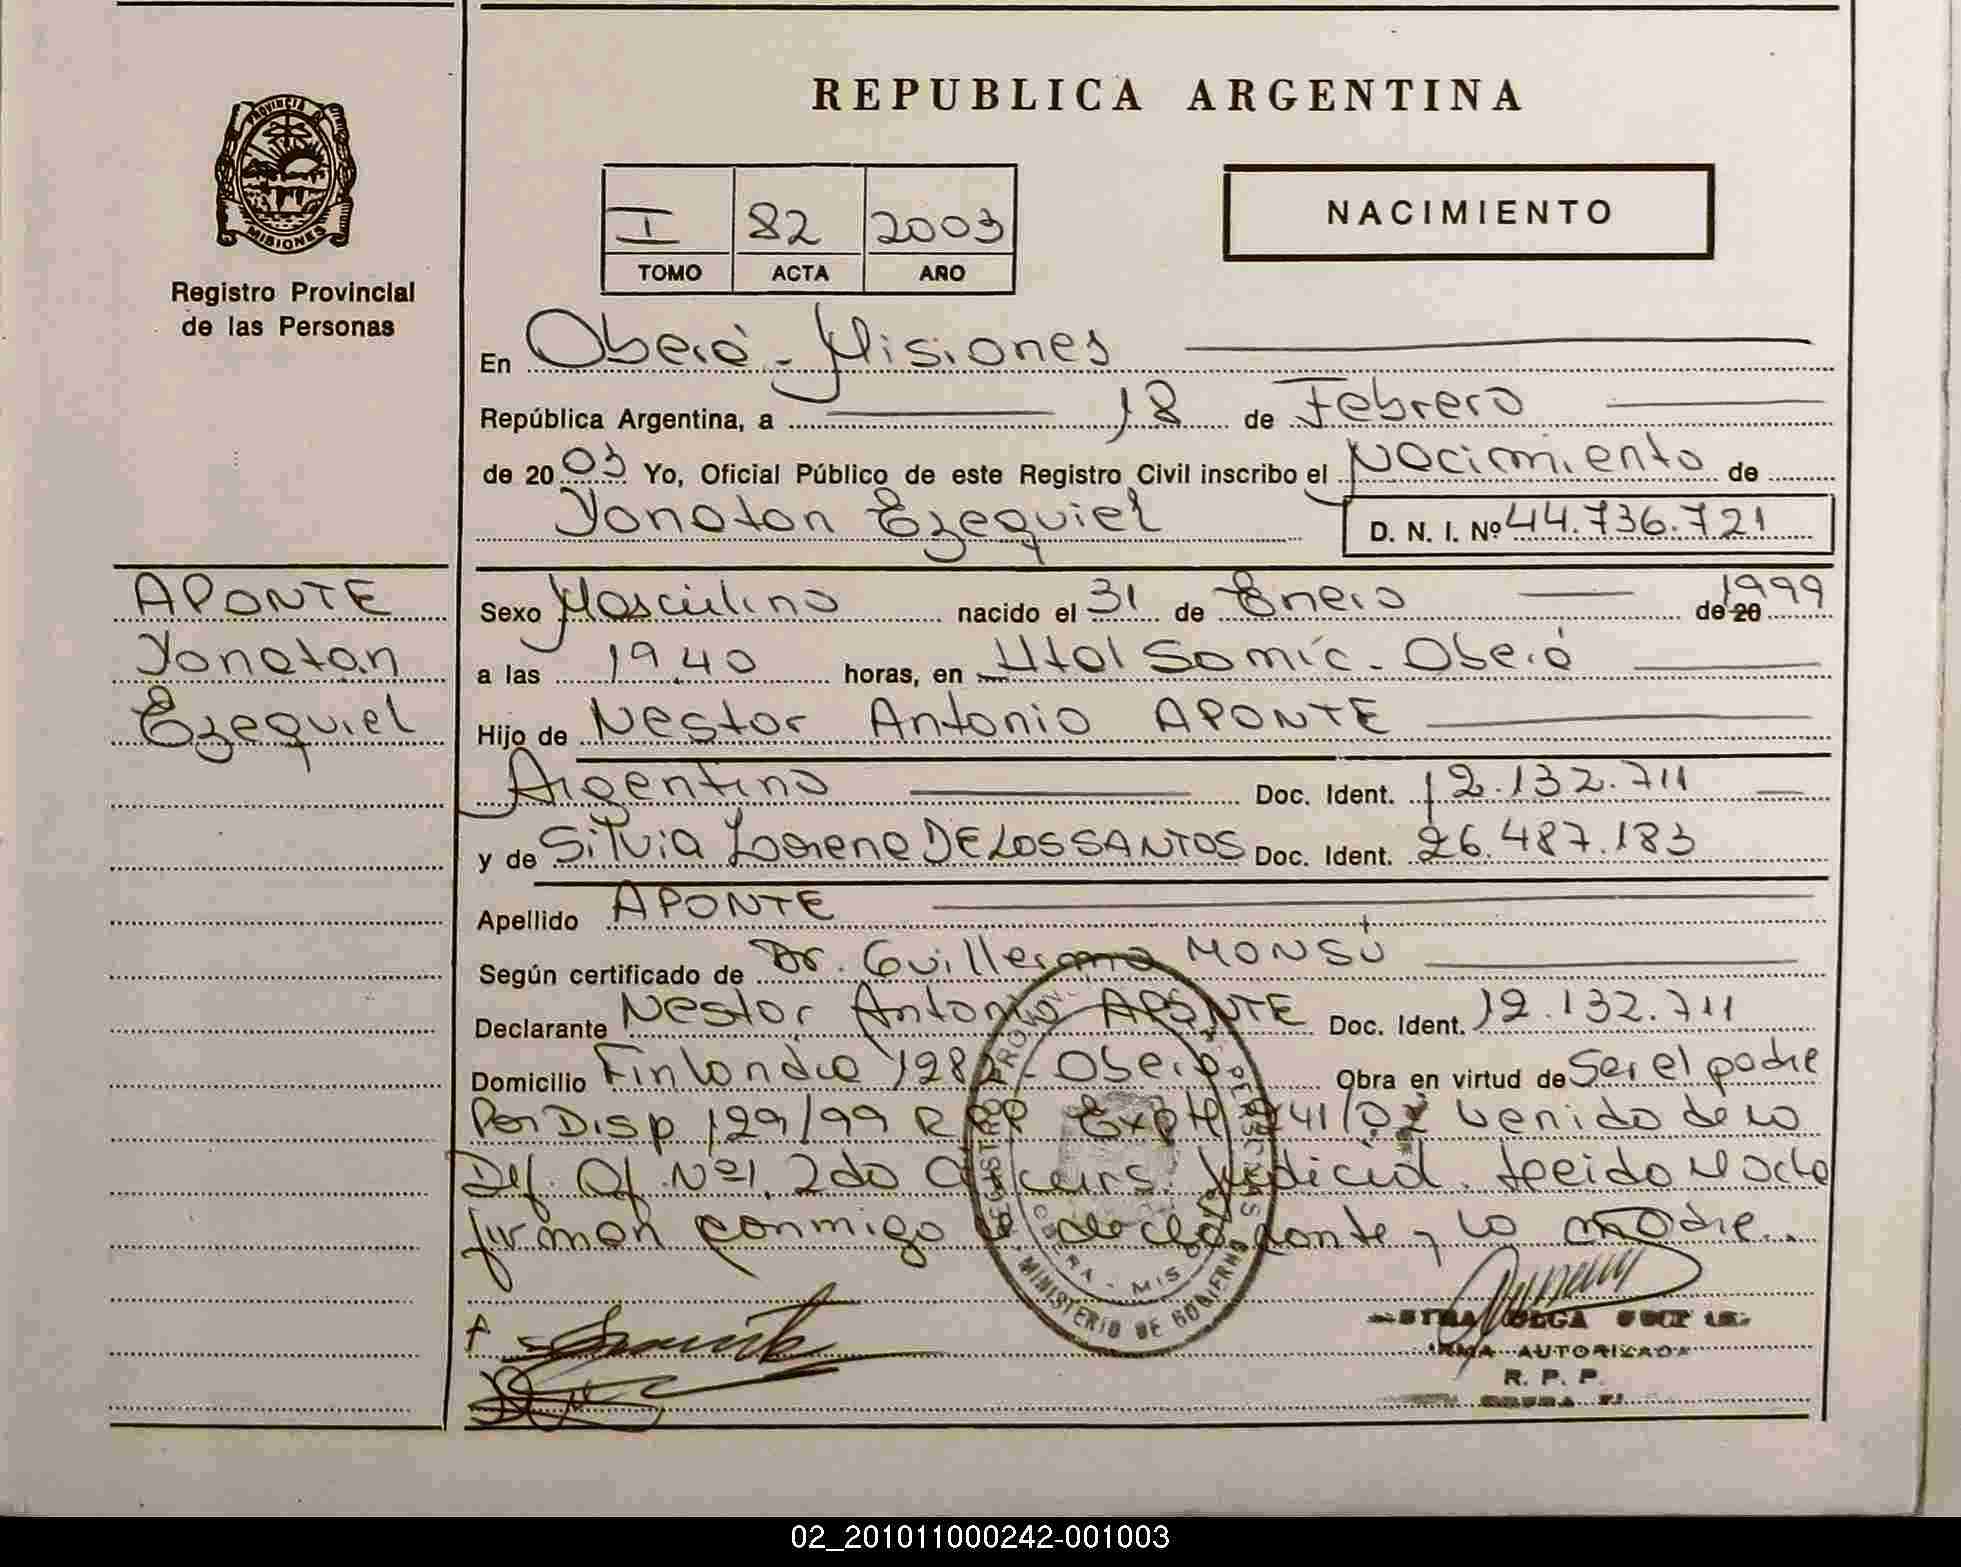 REPUBLICA ARGENTINA
PROVINCIA DE
MISIONES
Registro Provincial
de las Personas
I 82 2003
TOMO ACTA AÑO
NACIMIENTO
En Oberá - Misiones
República Argentina, a 18 de Febrero
de 2003 Yo, Oficial Público de este Registro Civil inscribo el Nacimiento de
Yonatan Ezequiel D. N. I. Nº 44.736.721
APONTE
Yonatan
Ezequiel
Sexo Masculino nacido el 31 de Enero de 20 1999
a las 19.40 horas, en Htal Samic - Oberá
Hijo de Nestor Antonio APONTE
Argentino Doc. Ident. 12.132.711
y de Silvia Lorena DE LOS SANTOS Doc. Ident. 26.487.183
Apellido APONTE
Según certificado de Dr. Guillermo MONSÚ
Declarante Nestor Antonio APONTE Doc. Ident. 12.132.711
Domicilio Finlandia 1282 - Oberá Obra en virtud de Ser el padre
Por Disp 129/99 RPP Expte 41/02 venido de la
Def. Of. Nº1, 2da Circuns. Judicial. Leida el acta
firman conmigo el declarante y la madre.
MINISTERIO DE GOBIERNO
OLGA
FIRMA AUTORIZADA
R. P. P.
02_201011000242-001003